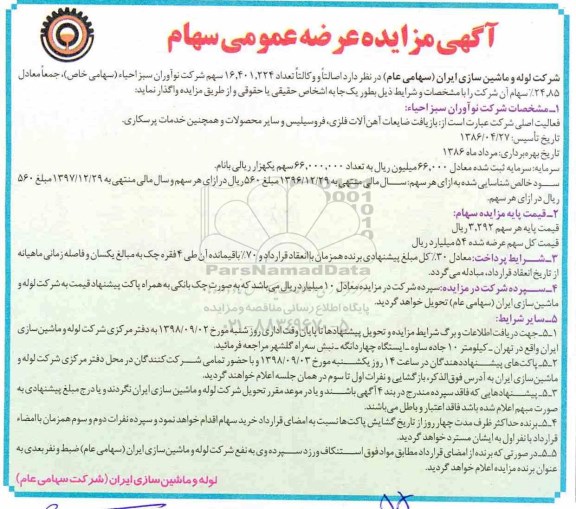 آگهی مزایده عرضه عمومی سهام
شرکت لوله و ماشین سازی ایران (سهامی عام) در نظر دارد اصالتاً و وکالتاً تعداد ۱۶,۴۰۱,۲۲۴ سهم شرکت نوآوران سبز احیاء (سهامی خاص)، جمعاً معادل
۲۴.۸۵٪ سهام آن شرکت را با مشخصات و شرایط ذیل بطور یک جا به اشخاص حقیقی یا حقوقی و از طریق مزایده واگذار نماید:
۱ـ مشخصات شرکت نوآوران سبز احیاء:
فعالیت اصلی شرکت عبارت است از: بازیافت ضایعات آهن آلات فلزی، فروسیلیس و سایر محصولات و همچنین خدمات پرسکاری.
تاریخ تأسیس: ۱۳۸۶/۰۴/۲۷
تاریخ بهره برداری: مرداد ماه ۱۳۸۶
سرمایه: سرمایه ثبت شده معادل ۶۶,۰۰۰ میلیون ریال به تعداد ۶۶,۰۰۰,۰۰۰ سهم یکهزار ریالی بانام.
سود خالص شناسایی شده به ازای هر سهم: سال مالی منتهی به ۱۳۹۶/۱۲/۲۹ مبلغ ۵۶۰ ریال در ازای هر سهم و سال مالی منتهی به ۱۳۹۷/۱۲/۲۹ مبلغ ۵۶۰
ریال در ازای هر سهم.
۲ـ قیمت پایه مزایده سهام:
قیمت پایه هر سهم ۳,۲۹۲ ریال
قیمت کل سهم عرضه شده ۵۴ میلیارد ریال
۳ـ شرایط پرداخت: معادل ۳۰٪ کل مبلغ پیشنهادی برنده همزمان با انعقاد قرارداد و ۷۰٪ باقیمانده آن طی ۴ فقره چک به مبالغ یکسان و فاصله زمانی ماهیانه
از تاریخ انعقاد قرارداد، مبادله می گردد.
۴ـ سپرده شرکت در مزایده: سپرده شرکت در مزایده معادل ۱۰ میلیارد ریال می باشد که به صورت چک بانکی به همراه پاکت پیشنهاد قیمت به شرکت لوله و
ماشین سازی ایران (سهامی عام) تحویل خواهد گردید.
۵ـ سایر شرایط:
۵ـ۱ـ جهت دریافت اطلاعات و برگ شرایط مزایده و تحویل پیشنهادها تا پایان وقت اداری روز شنبه مورخ ۱۳۹۸/۰۹/۰۲ به دفتر مرکزی شرکت لوله و ماشین سازی
ایران واقع در تهران ـ کیلومتر ۱۰ جاده ساوه ـ ایستگاه چهاردانگه ـ نبش سه راه گلشهر مراجعه فرمائید.
۵ـ۲ـ پاکت های پیشنهاد دهندگان در ساعت ۱۴ روز یکشنبه مورخ ۱۳۹۸/۰۹/۰۳ و با حضور تمامی شرکت کنندگان در محل دفتر مرکزی شرکت لوله و
ماشین سازی ایران به آدرس فوق الذکر، بازگشایی و نفرات اول تا سوم در همان جلسه اعلام خواهند گردید.
۵ـ۳ـ پیشنهادهایی که فاقد سپرده مندرج در بند ۴ آگهی باشند و یا در موعد مقرر تحویل شرکت لوله و ماشین سازی ایران نگردند و یا درج مبلغ پیشنهادی به
صورت مبهم اعلام شده باشد فاقد اعتبار و باطل می باشند.
۵ـ۴ـ برنده حداکثر ظرف مدت چهار روز از تاریخ گشایش پاکت ها نسبت به امضای قرارداد خرید سهام اقدام خواهد نمود و سپرده نفرات دوم و سوم همزمان با امضاء
قرارداد با نفر اول به ایشان مسترد خواهد گردید.
۵ـ۵ـ در صورتی که برنده از امضای قرارداد مطابق مواد فوق استنکاف ورزد سپرده وی به نفع شرکت لوله و ماشین سازی ایران (سهامی عام) ضبط و نفر بعدی به
عنوان برنده مزایده اعلام خواهد گردید.
لوله و ماشین سازی ایران (شرکت سهامی عام)
ParsNamadData
پایگاه اطلاع رسانی مناقصه و مزایده